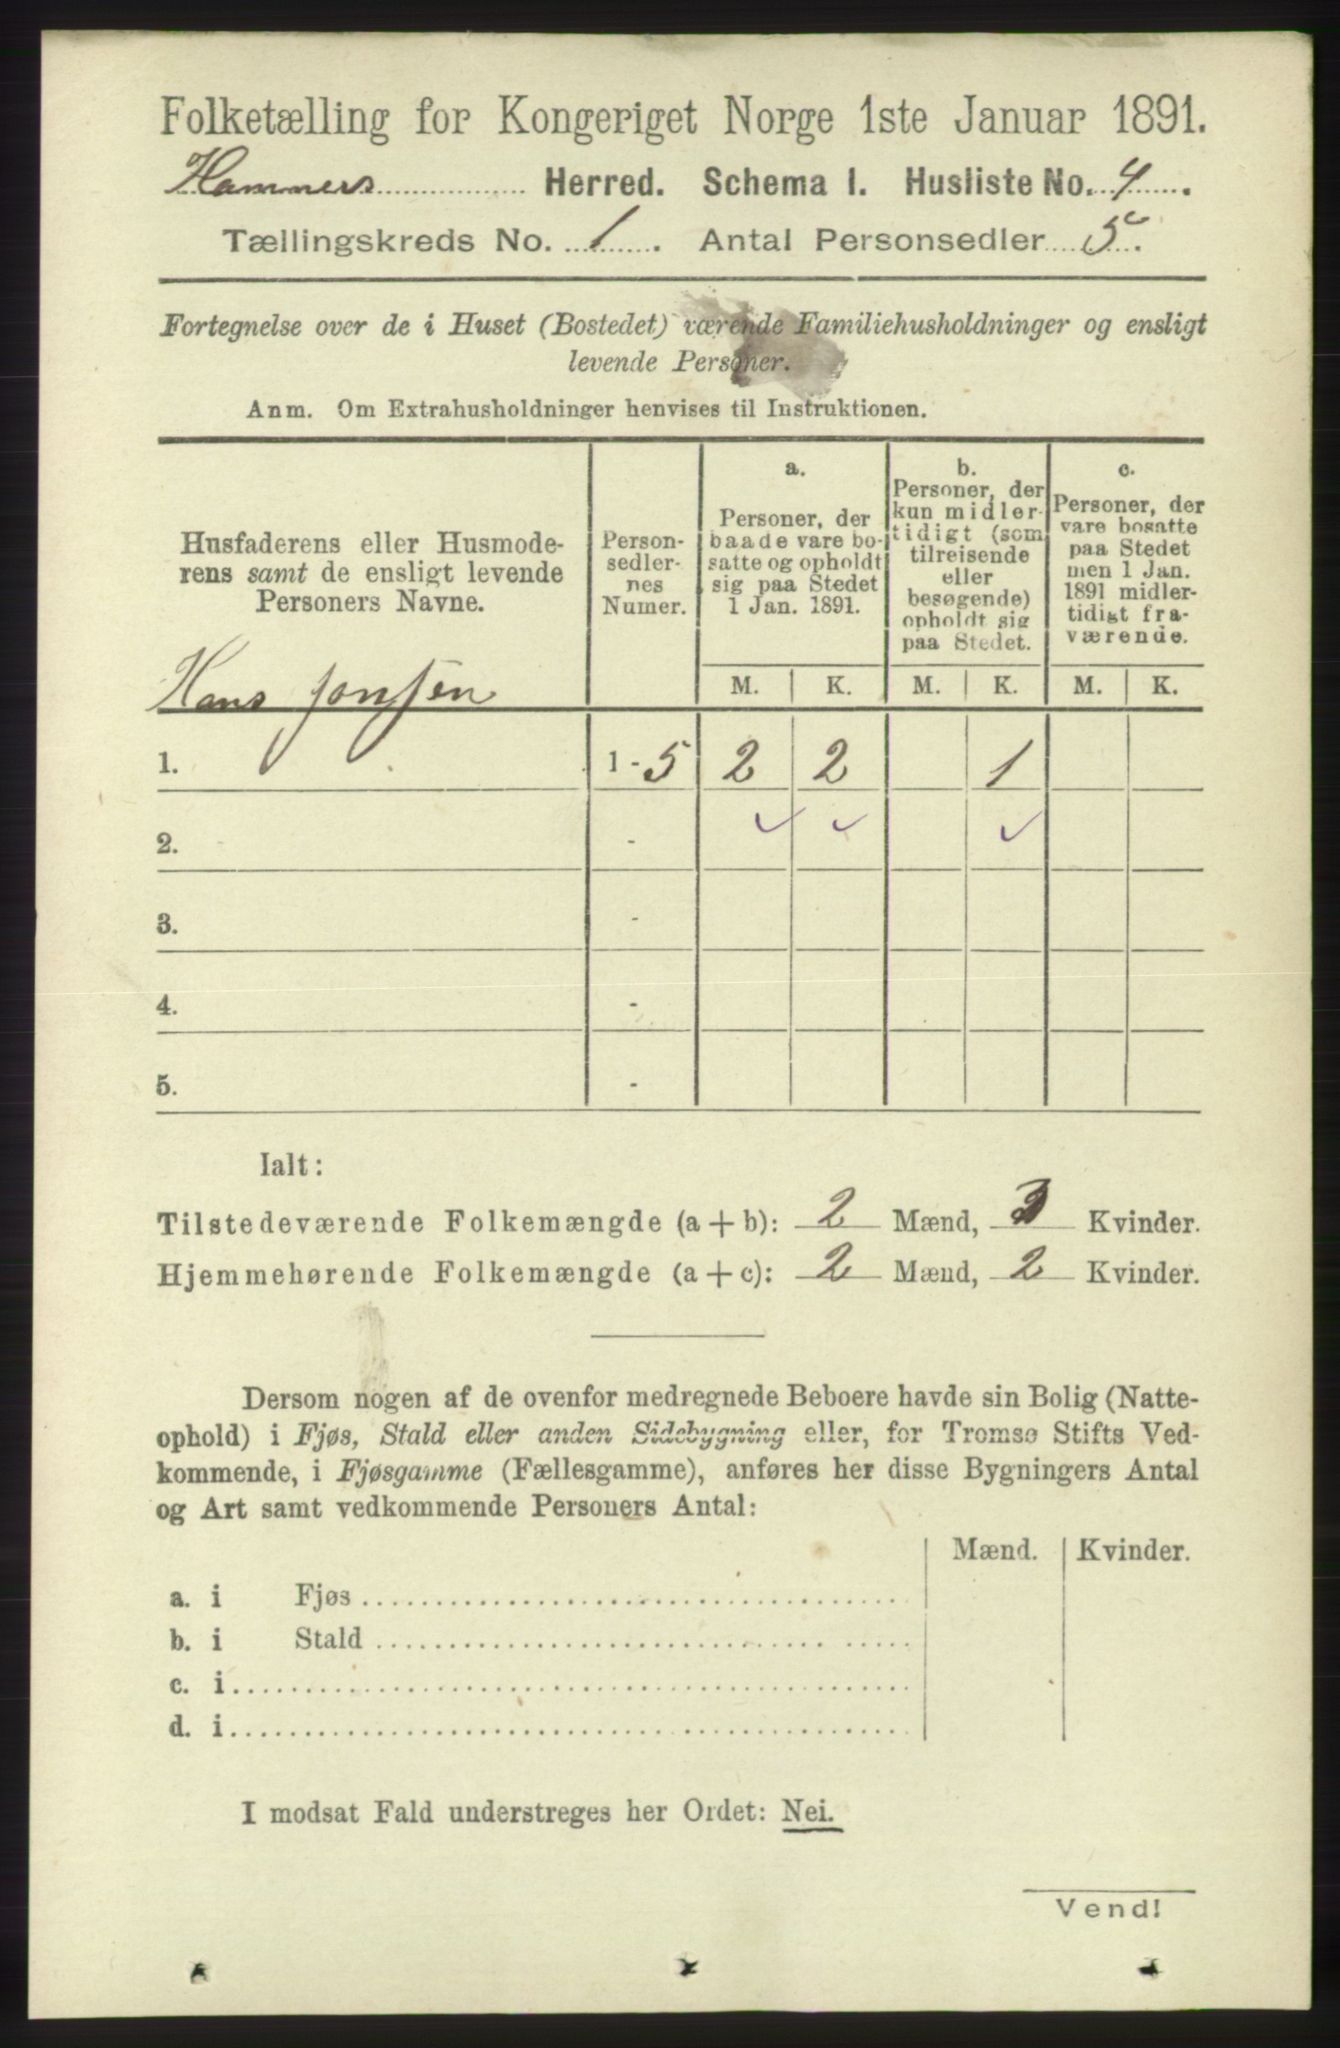 Folketælling for Kongeriget Norge 1ste Januar 1891.
Hammers Herred. Schema I. Husliste No. 4.
Tællingskreds No. 1. Antal Personsedler 5.
Fortegnelse over de i Huset (Bostedet) værende Familiehusholdninger og ensligt
levende Personer.
Anm. Om Extrahusholdninger henvises til Instruktionen.
Husfaderens eller Husmode-
rens samt de ensligt levende
Personers Navne.
Person-
sedler-
nes
Numer.
a.
Personer, der
baade vare bo-
satte og opholdt
sig paa Stedet
1 Jan. 1891.
b.
Personer, der
kun midler-
tidigt (som
tilreisende
eller
besøgende)
opholdt sig
paa Stedet.
c.
Personer, der
vare bosatte
paa Stedet
men 1 Jan.
1891 midler-
tidigt fra-
værende.
M. K. M. K. M. K.
Hans Jonsen
1. 1 - 5 2 2 1
2. - ✓ ✓ ✓
3. -
4. -
5. -
Ialt:
Tilstedeværende Folkemængde (a + b): 2 Mænd, 3 Kvinder.
Hjemmehørende Folkemængde (a + c): 2 Mænd, 2 Kvinder.
Dersom nogen af de ovenfor medregnede Beboere havde sin Bolig (Natte-
ophold) i Fjøs, Stald eller anden Sidebygning eller, for Tromsø Stifts Ved-
kommende, i Fjøsgamme (Fællesgamme), anføres her disse Bygningers Antal
og Art samt vedkommende Personers Antal:
Mænd. Kvinder.
a. i Fjøs
b. i Stald
c. i
d. i
I modsat Fald understreges her Ordet: Nei.
Vend!